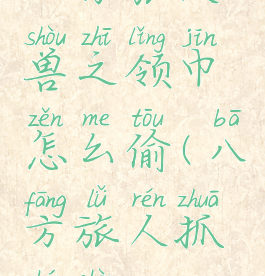 shòu zhī lǐng jīn
兽之领巾
zěn me tōu bā
怎么偷(八
fāng lǚ rén zhuā
方旅人抓